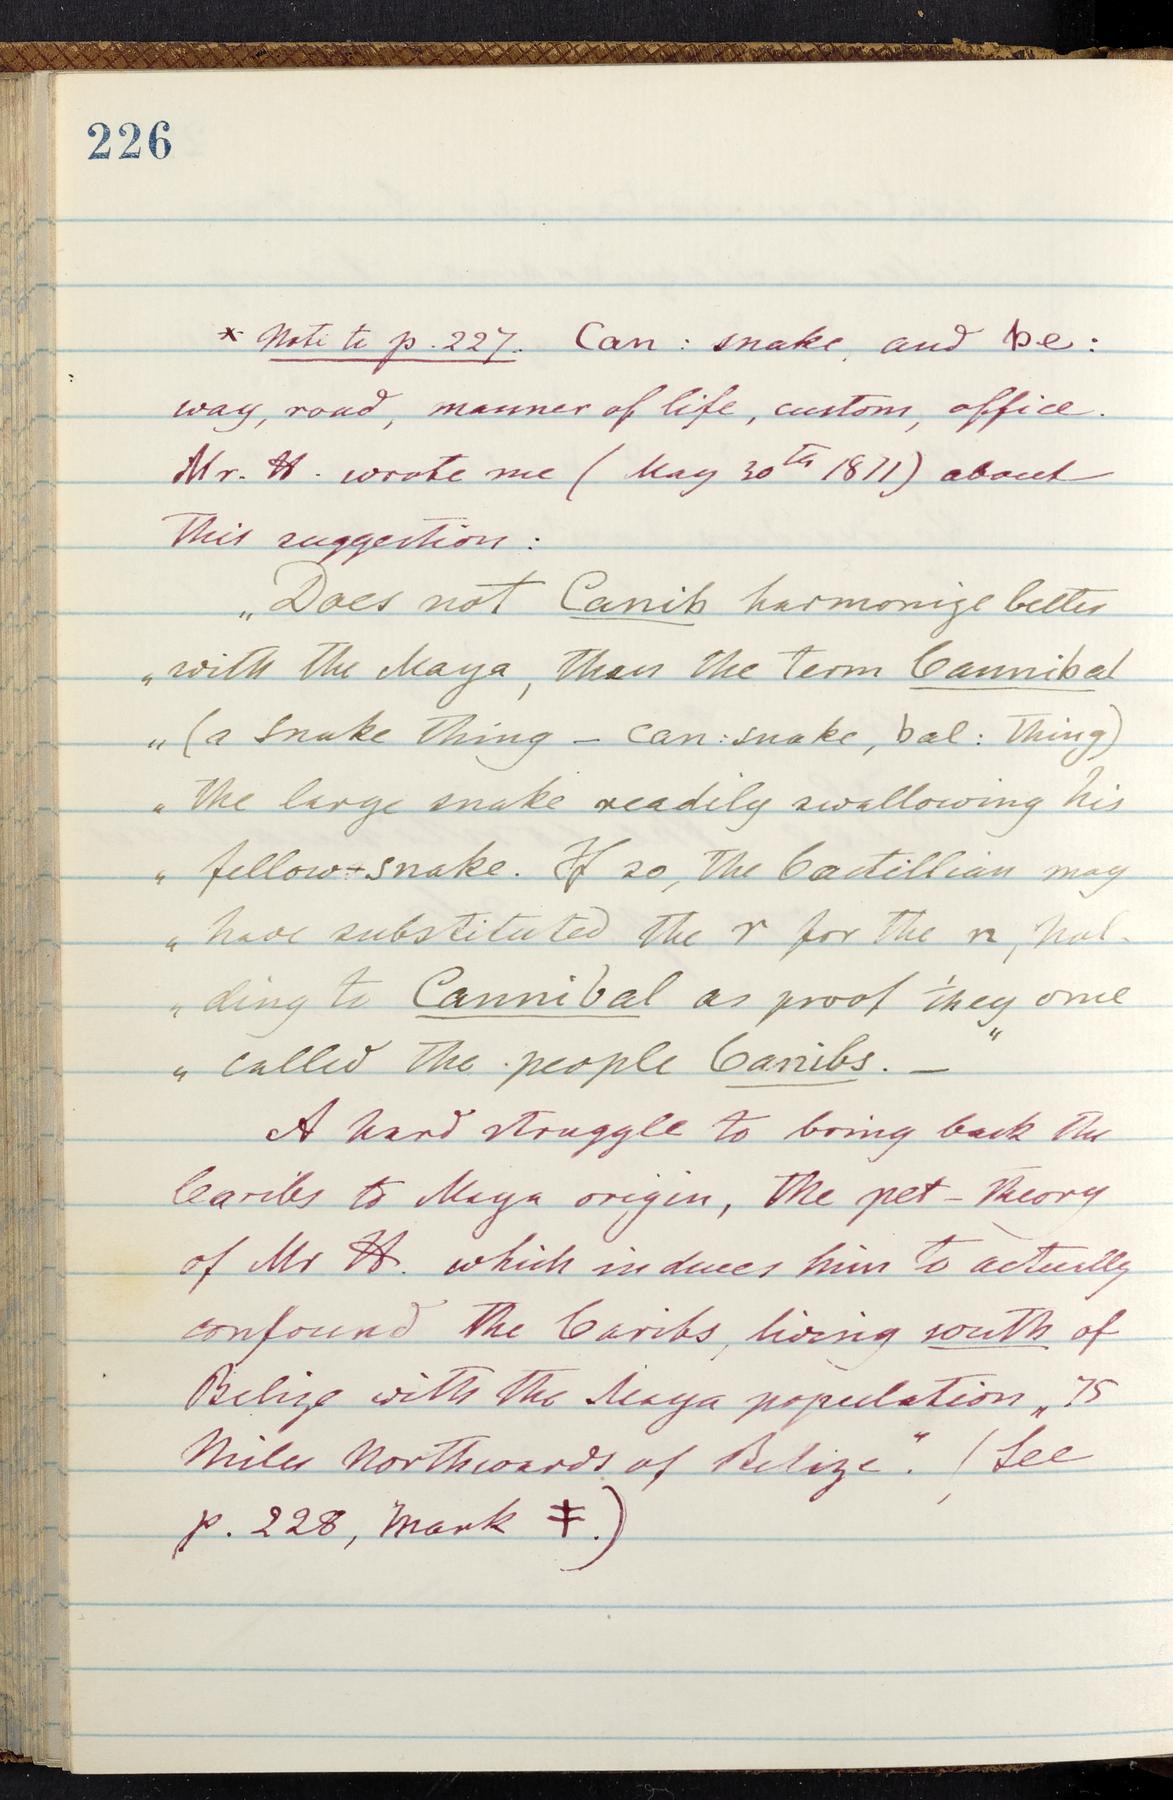 226
* Note to p. 227. Can : snake, and be :
way, road, manner of life, custom, office.
Mr. H. wrote me ( May 30th 1871) about
this suggestion :
„Does not Canib harmonize better
„ with the Maya, than the term Cannibal
„ (a snake thing – can : snake, bal : thing)
„ the large snake readily swallowing his
„ fellow-snake. If so, the Castillian may
„ have substituted the r for the n, hol-
„ ding to Cannibal as proof they once
„ called the people Canibs. — "
A hard struggle to bring back the
Caribs to Maya origin, the pet-theory
of Mr H. which induces him to actually
confound the Caribs, living south of
Belize with the Maya population „ 75
Miles Northwards of Belize". ( See
p. 228, mark ‡.)